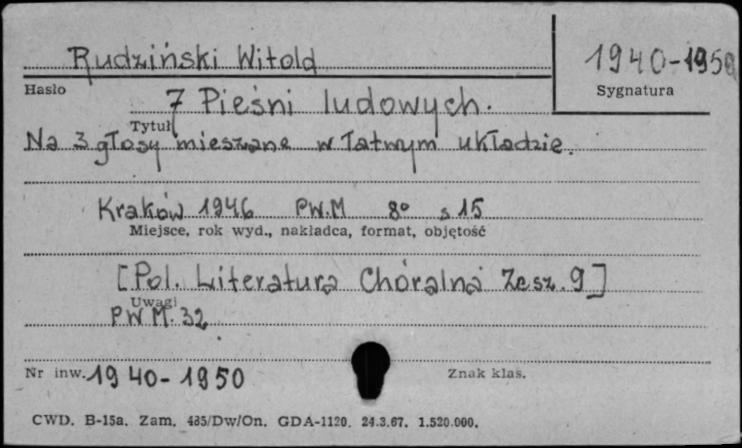 Rudziński Witold
1940-1950
Hasło
Sygnatura
7 Pieśni ludowych.
Tytuł
Na 3 głosy mieszane w łatwym układzie.
Kraków 1946 PW.M 8° s 15
Miejsce, rok wyd., nakładca, format, objętość
[Pol. Literatura Chóralna Zesz. 9]
Uwagi
PWM. 32
Nr inw. 1940-1950
Znak klas.
CWD. B-15a. Zam. 485/Dw/On. GDA-1120. 24.3.67. 1.520.000.